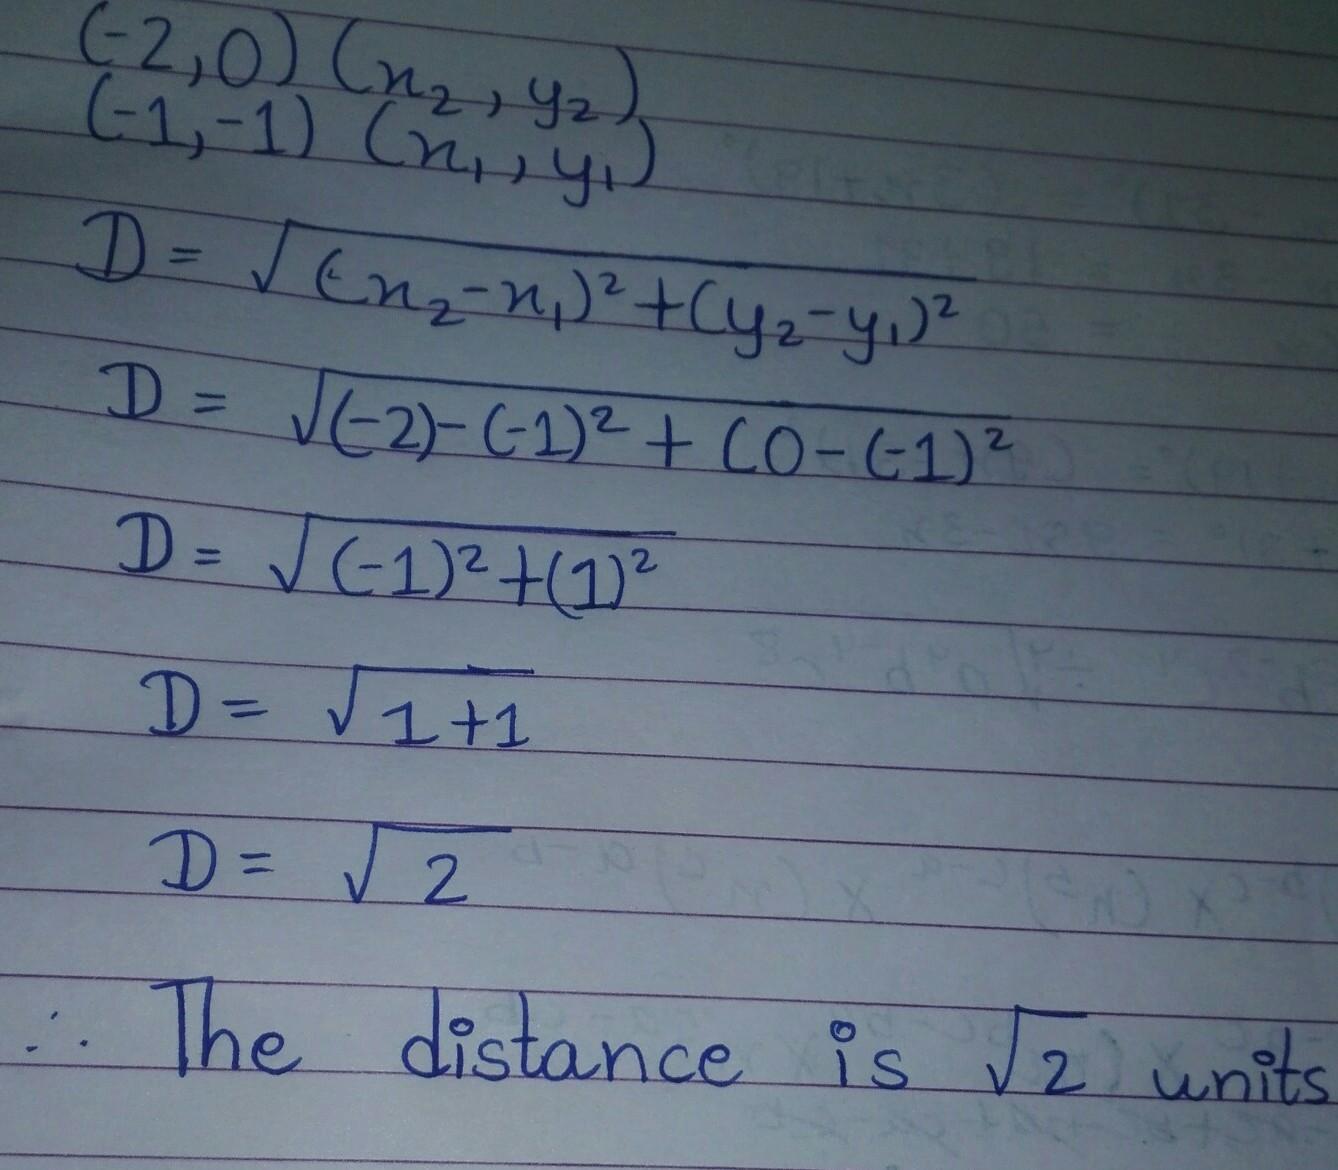 (-2,0) (x₂, y₂)
(-1,-1) (x₁, y₁)
D = √(x₂-x₁)²+(y₂-y₁)²
D = √(-2)-(-1)² + (0-(-1)²
D = √(-1)²+(1)²
D = √1+1
D = √2
∴ The distance is √2 units